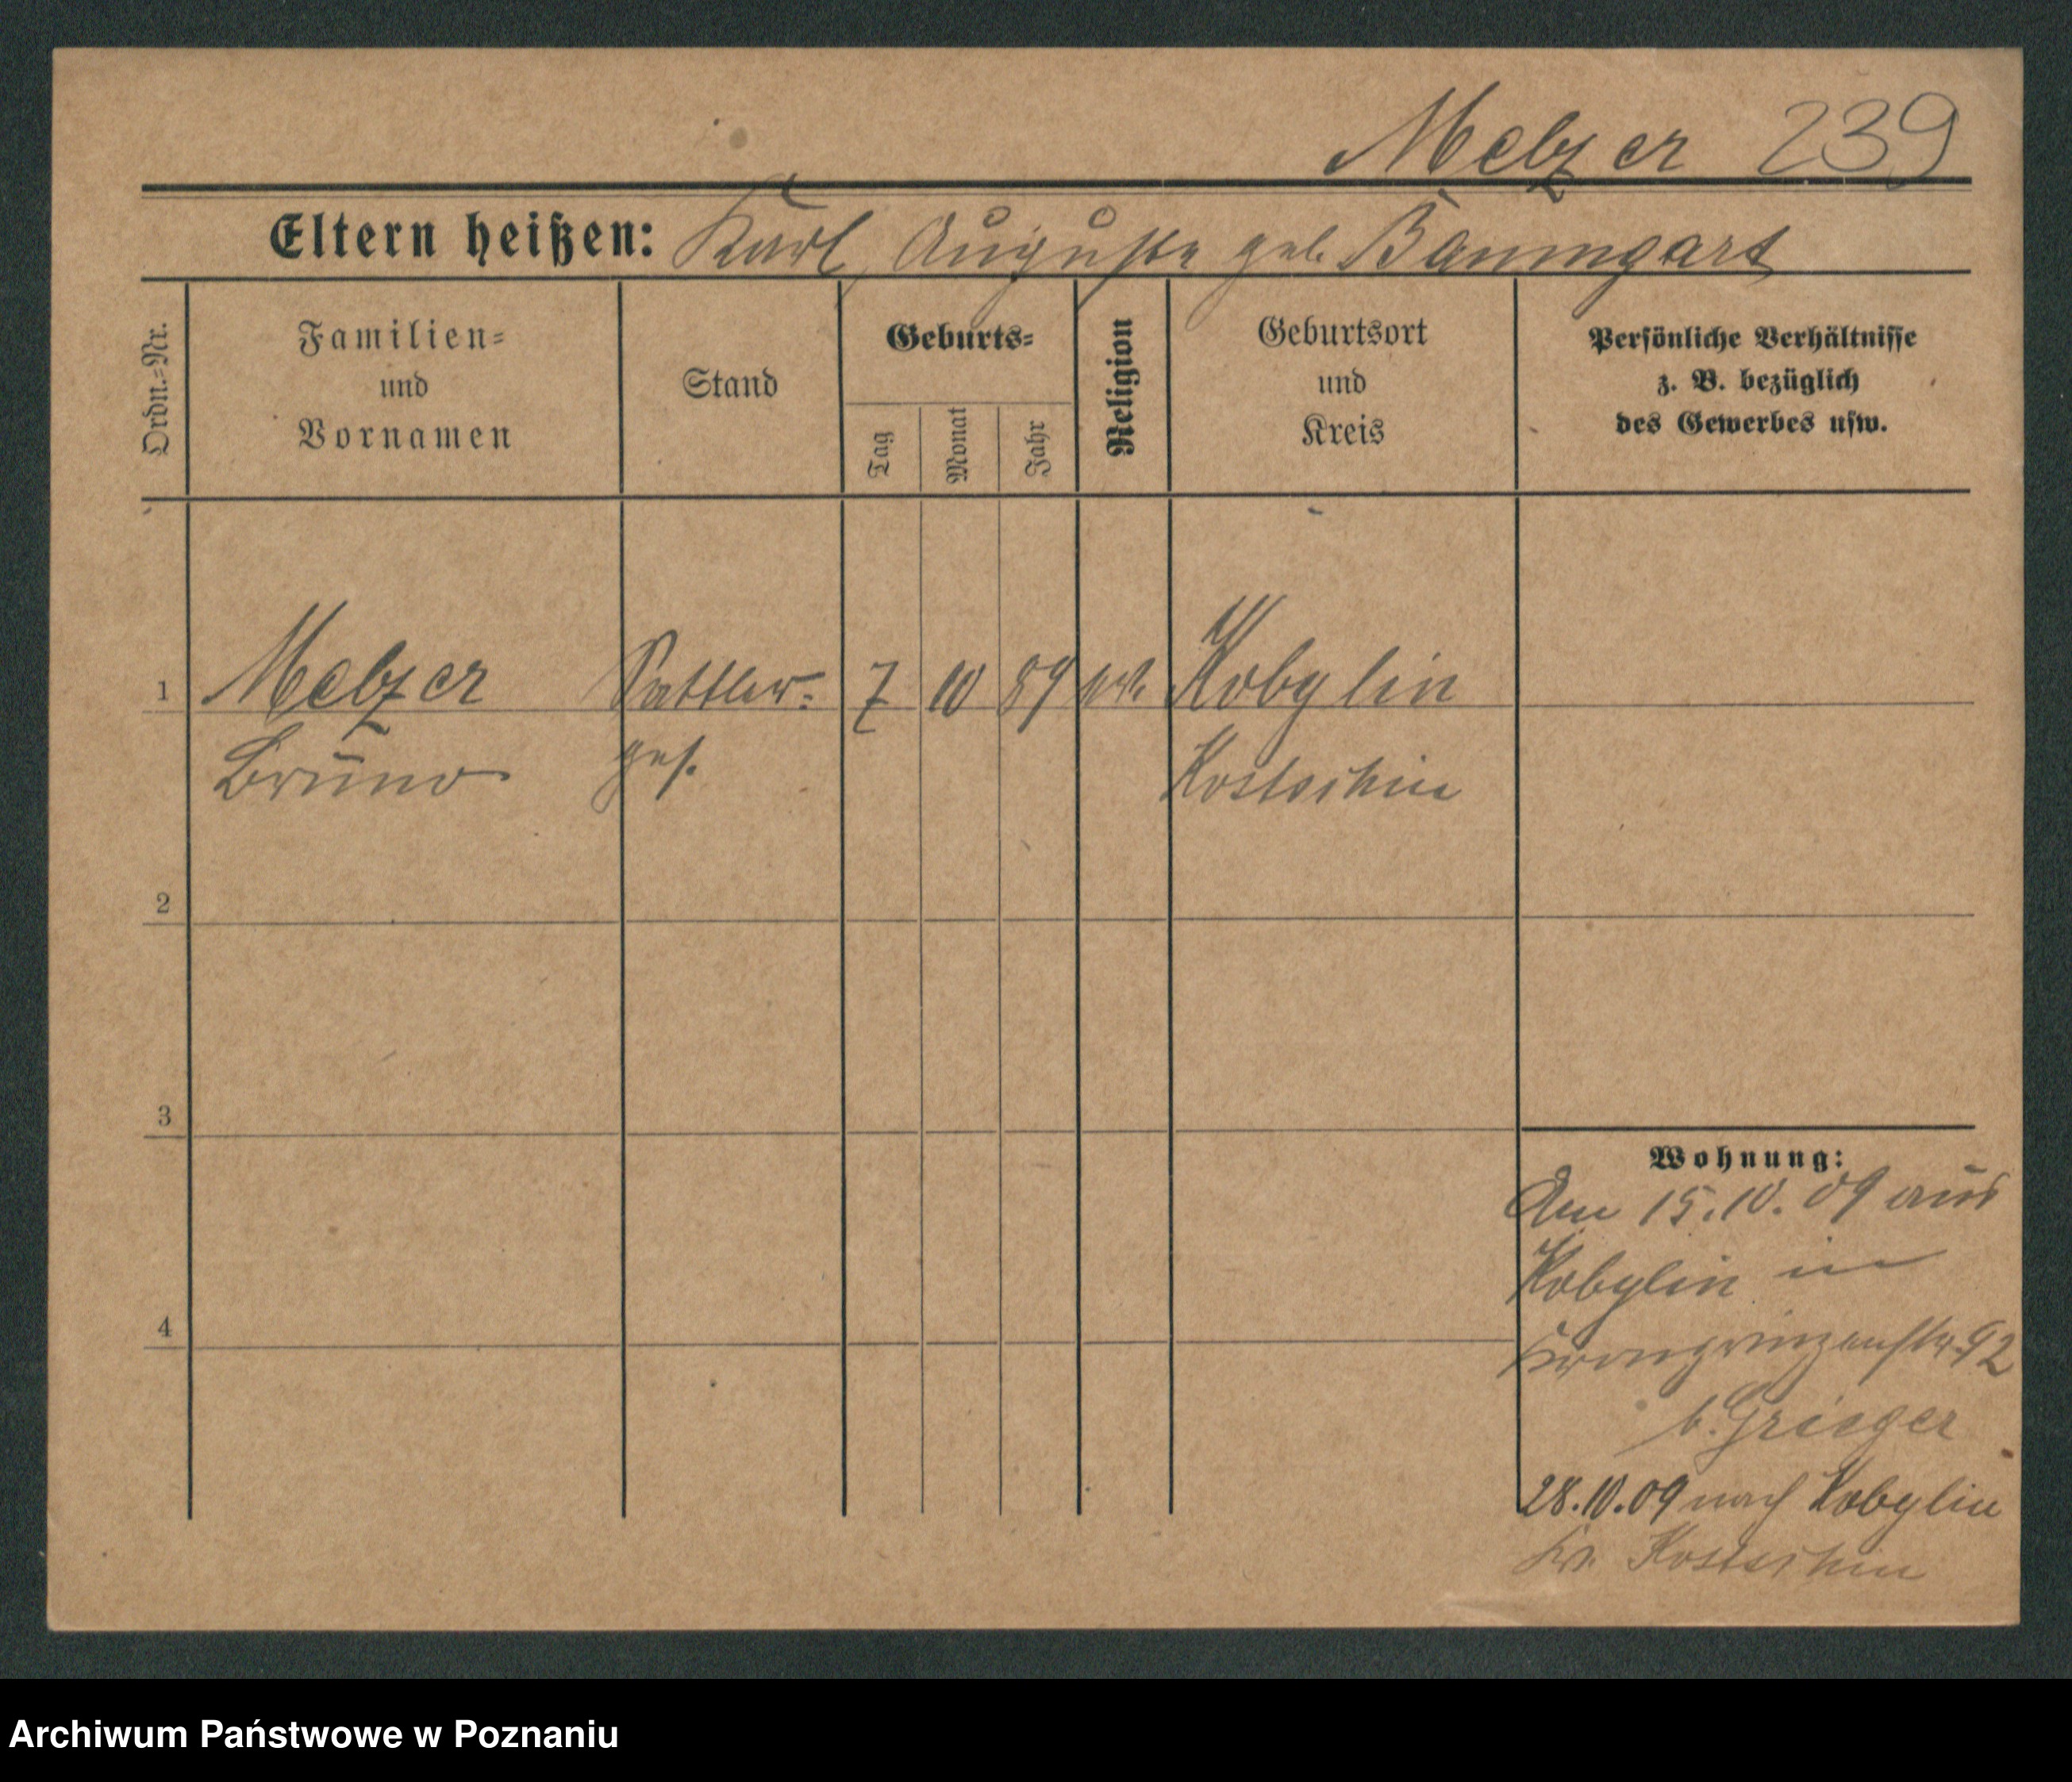 Melzer 239
Eltern heißen: Karl, Auguste geb. Baumgart
Ordn.=Nr.
Familien=
und
Vornamen
Stand
Geburts=
Tag
Monat
Jahr
Religion
Geburtsort
und
Kreis
Persönliche Verhältnisse
z. B. bezüglich
des Gewerbes usw.
1 Melzer Sattler= 7 10 89 Kobylin
Bruno ges. Kostschin
2
3
4
Wohnung:
Am 15.10.09 aus
Kobylin in
Kronprinzenstr. 92
b. Grieger
28.10.09 nach Kobylin
Kr. Kostschin
Archiwum Państwowe w Poznaniu